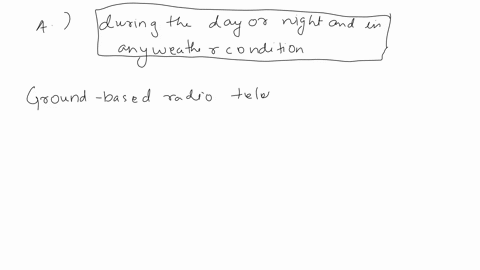 A.) during the day or night and in
any weather condition
Ground-based radio tele